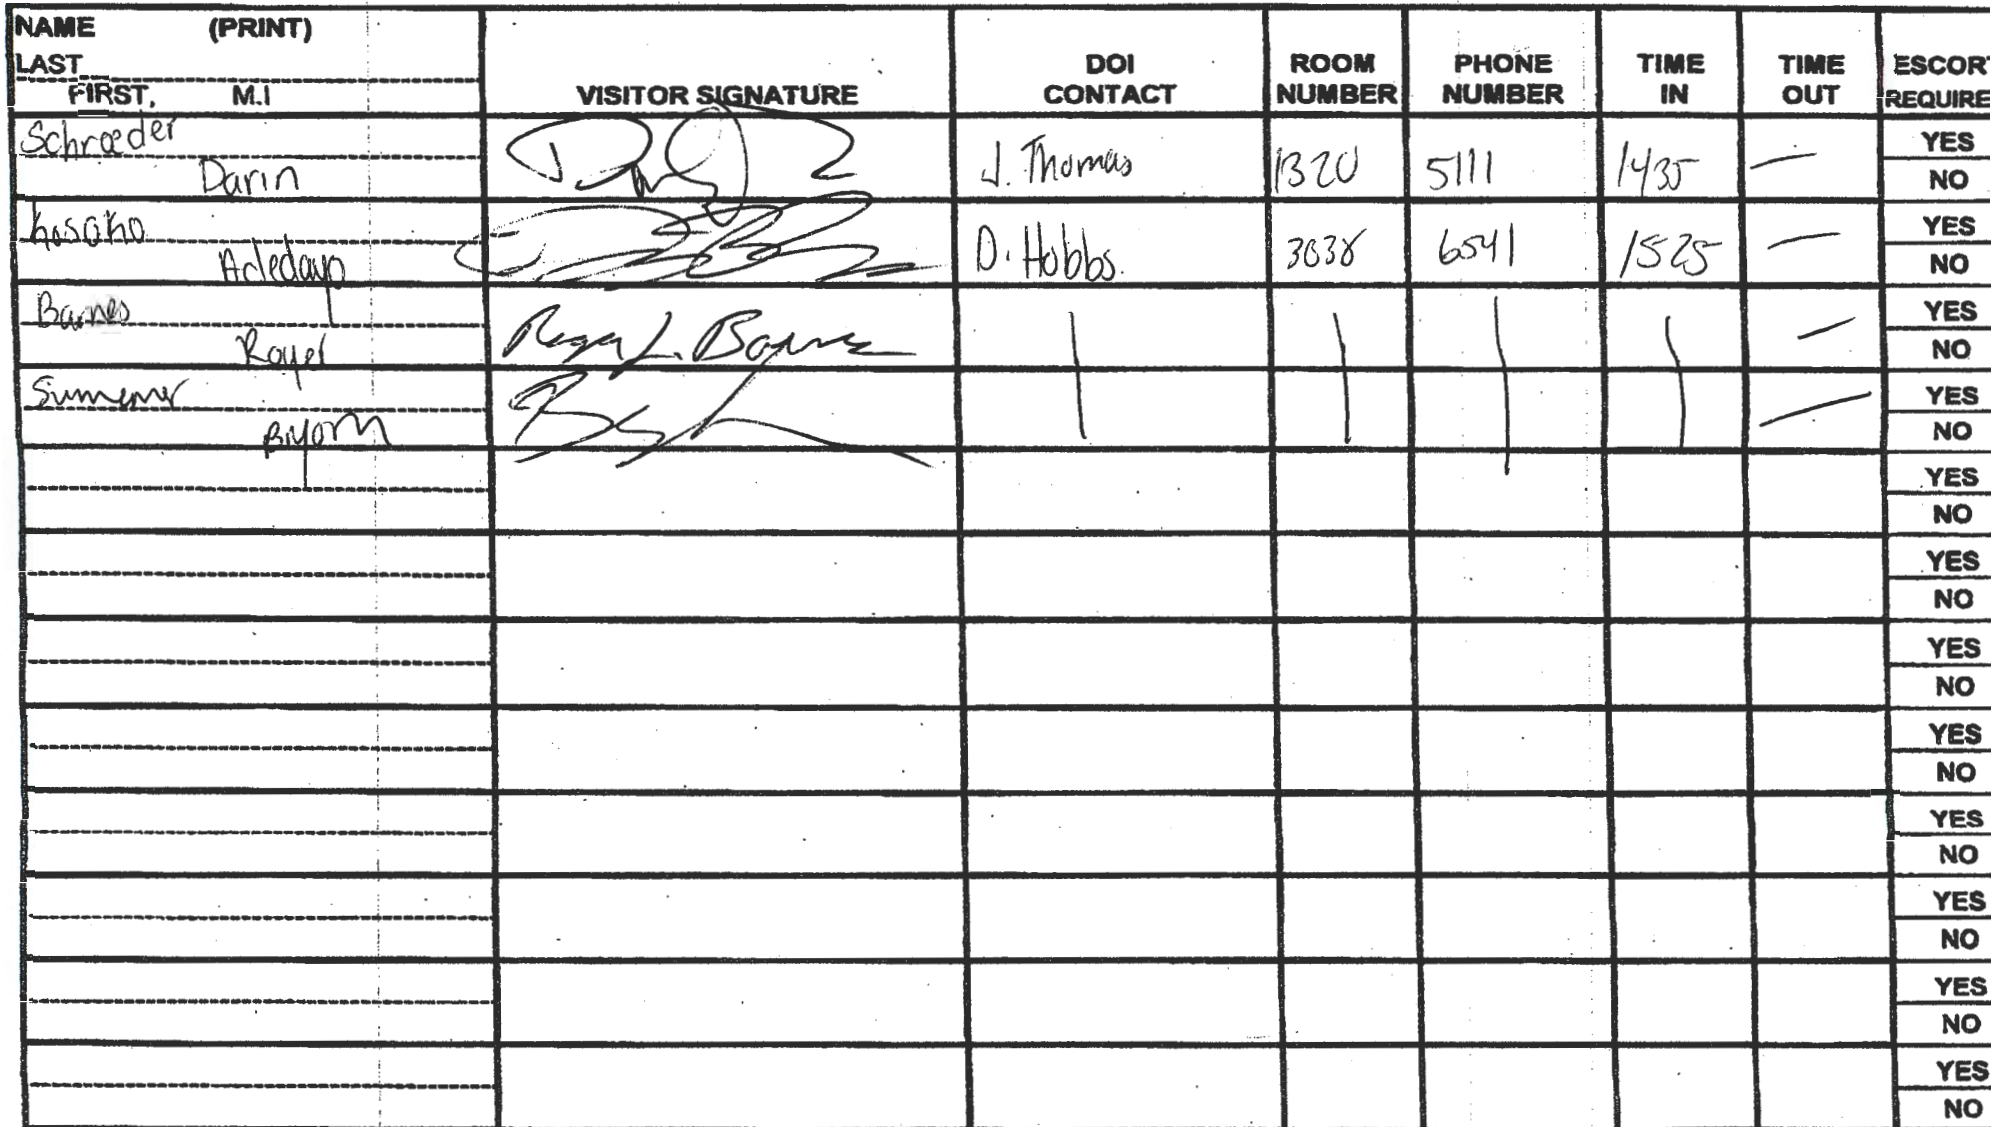 NAME (PRINT)
LAST
FIRST, M.I
VISITOR SIGNATURE
DOI
CONTACT
ROOM
NUMBER
PHONE
NUMBER
TIME
IN
TIME
OUT
ESCORT
REQUIRE
Schroeder
Darin
J. Thomas 1320 5111 1435 —
YES
NO
Kosoko
Adedayo
D. Hobbs. 3038 6541 1525 —
YES
NO
Barnes
Roger L. Barnes
—
YES
NO
—
YES
NO
YES
NO
YES
NO
YES
NO
YES
NO
YES
NO
YES
NO
YES
NO
YES
NO